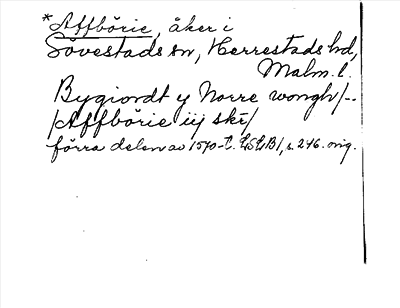 *Affbörie, åker i
Sövestads sn, Herrestads hd,
Malm. l.
Bygiordt y Norre wongh/--
/Affbörie iij skr/
förra delen av 1570-t. LSLB/, s. 246. orig.